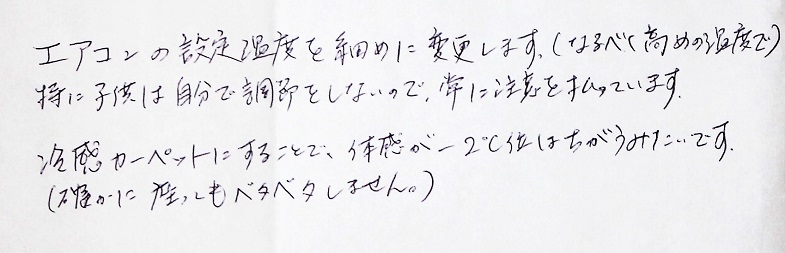 エアコンの設定温度を細めに変更します。(なるべく高めの温度で)
特に子供は自分で調節をしないので、常に注意を払っています。
冷感カーペットにすることで、体感が−2℃位はちがうみたいです。
(確かに座ってもベタベタしません。)